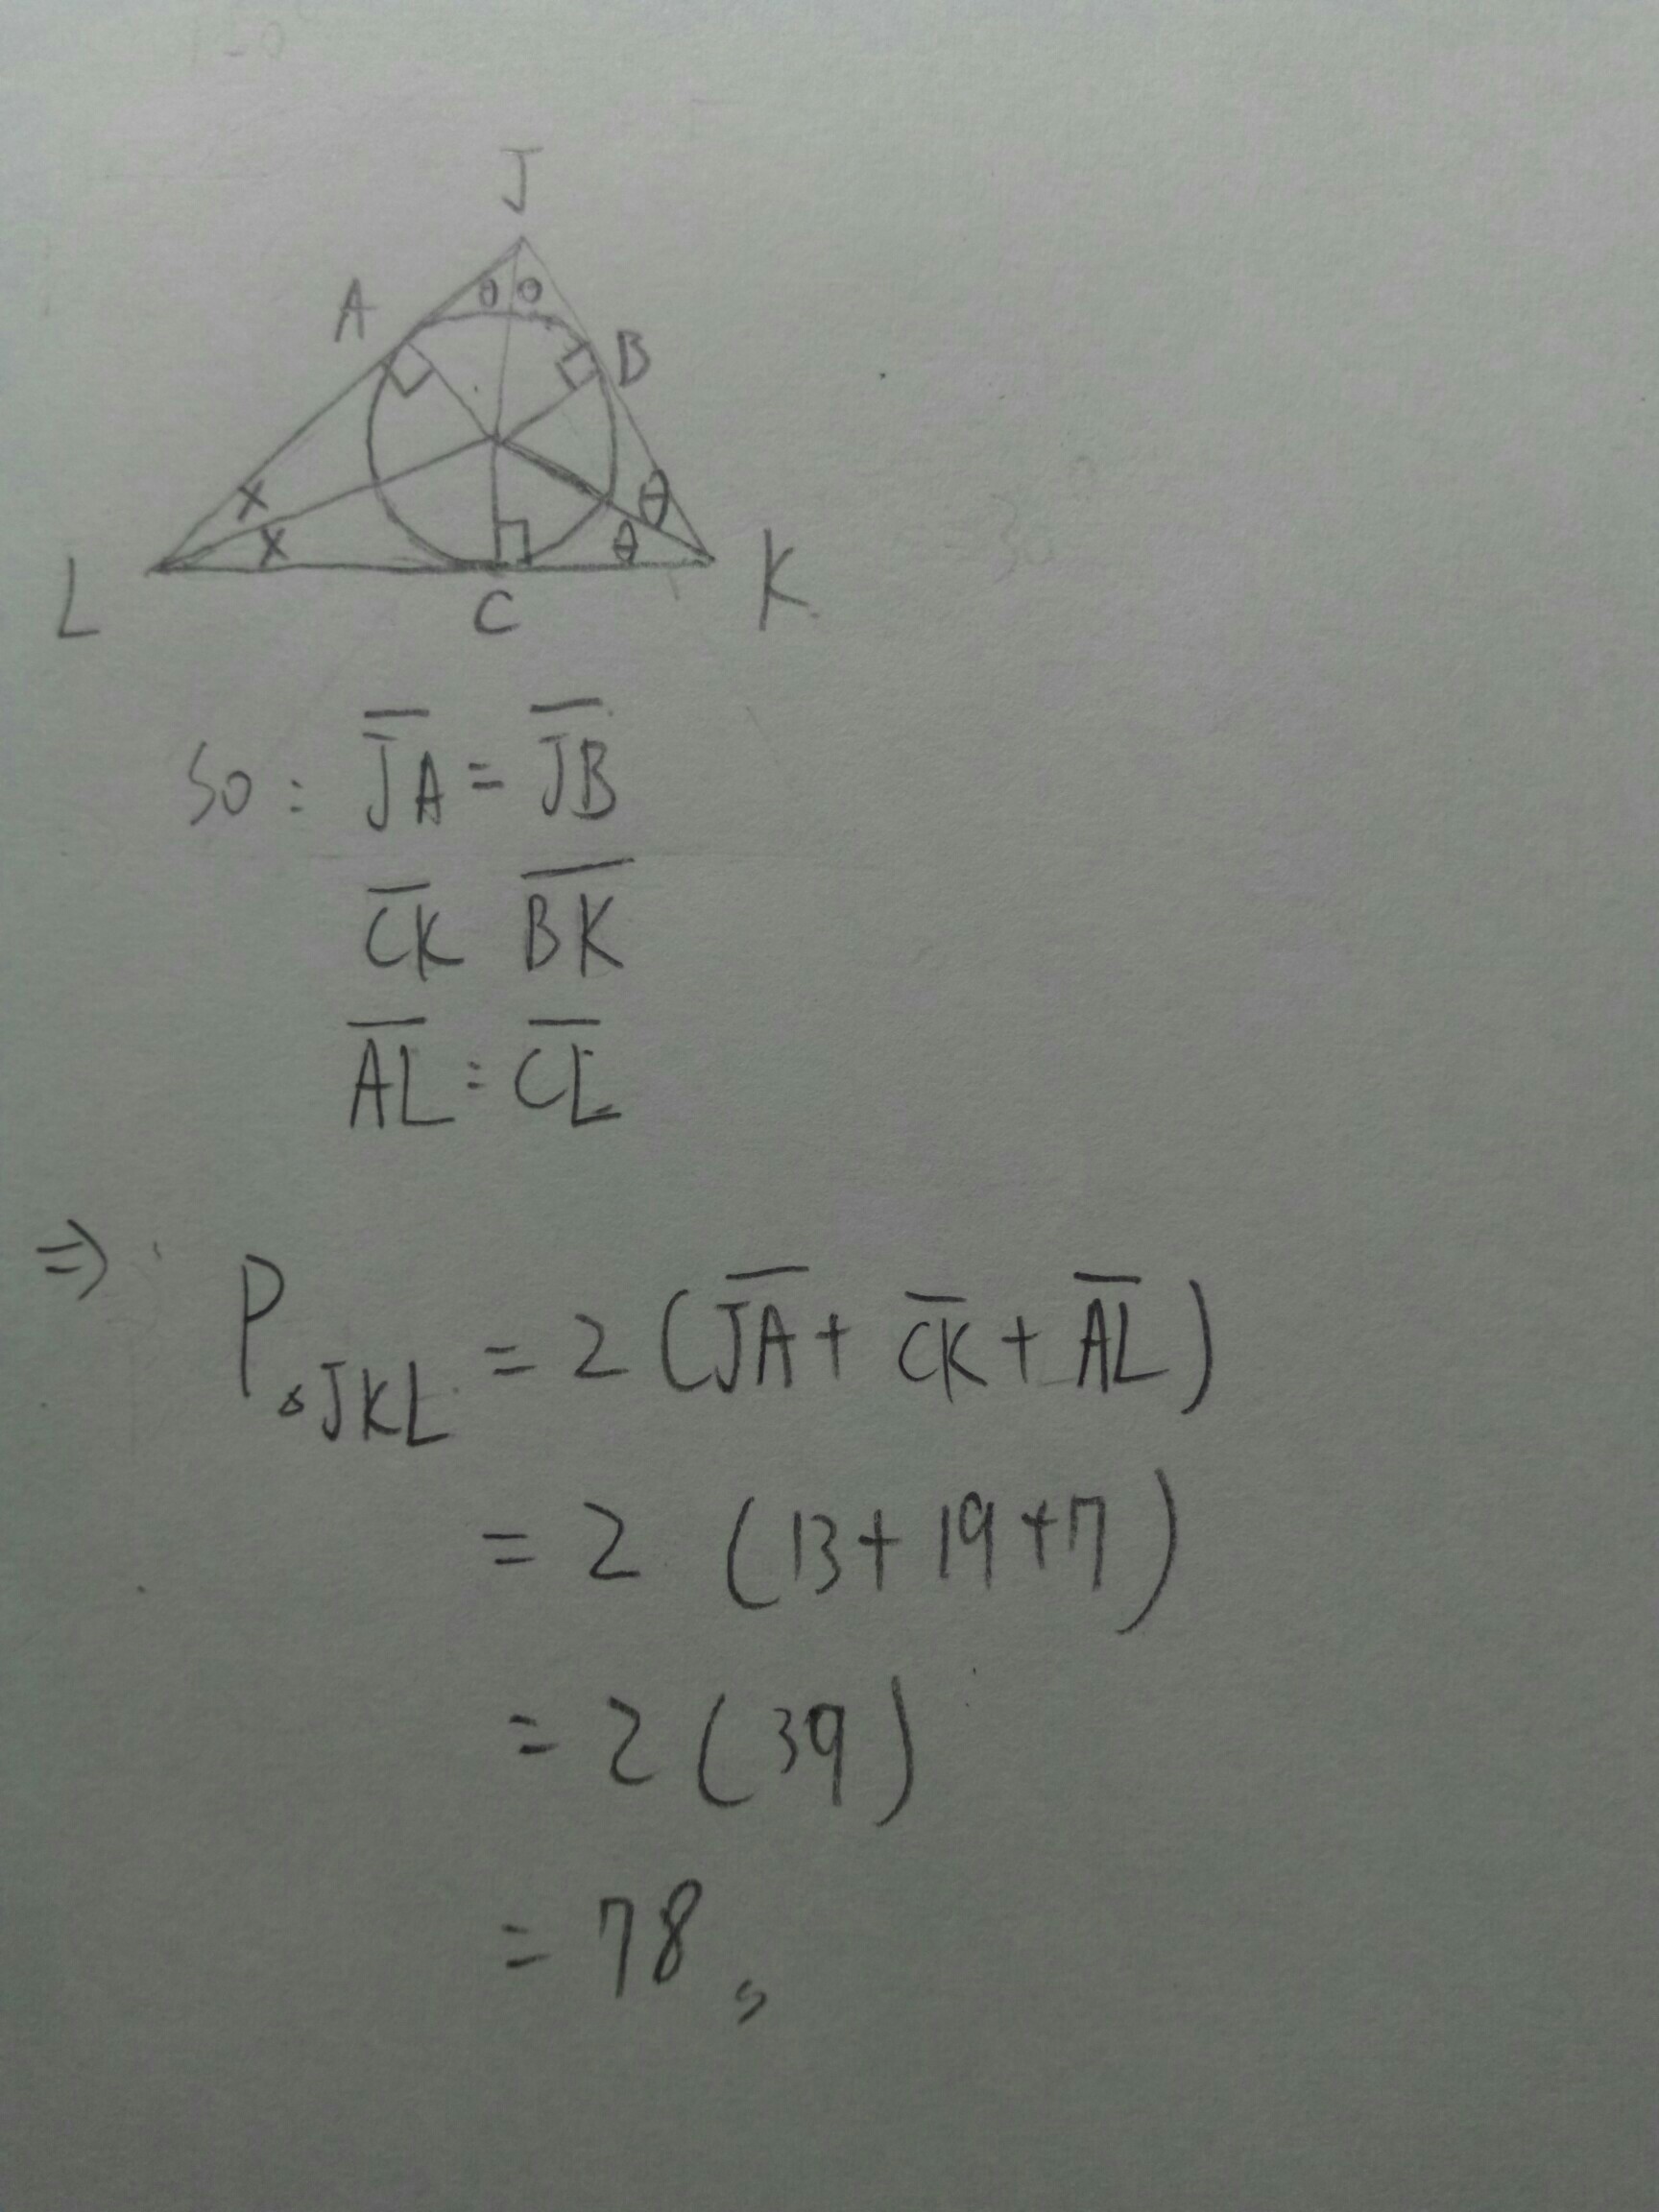 J
A
B
L
C
K
x
x
θ
θ
so : J̅A̅ = J̅B̅
C̅K̅ B̅K̅
A̅L̅ = C̅L̅
⇒ P△JKL = 2 (J̅A̅ + C̅K̅ + A̅L̅)
= 2 (13 + 19 + 7)
= 2 (39)
= 78